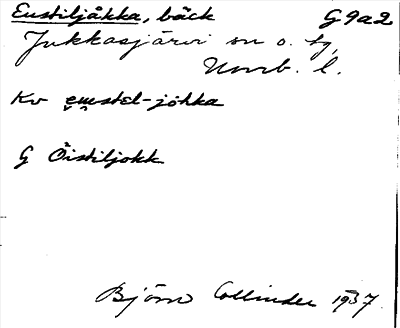 Eustiljåkka, bäck G9a2
Jukkasjärvi sn o. tg,
Norrb. l.
Kv eustel-johka
G Õistiljokk
Björn Collinder 1937